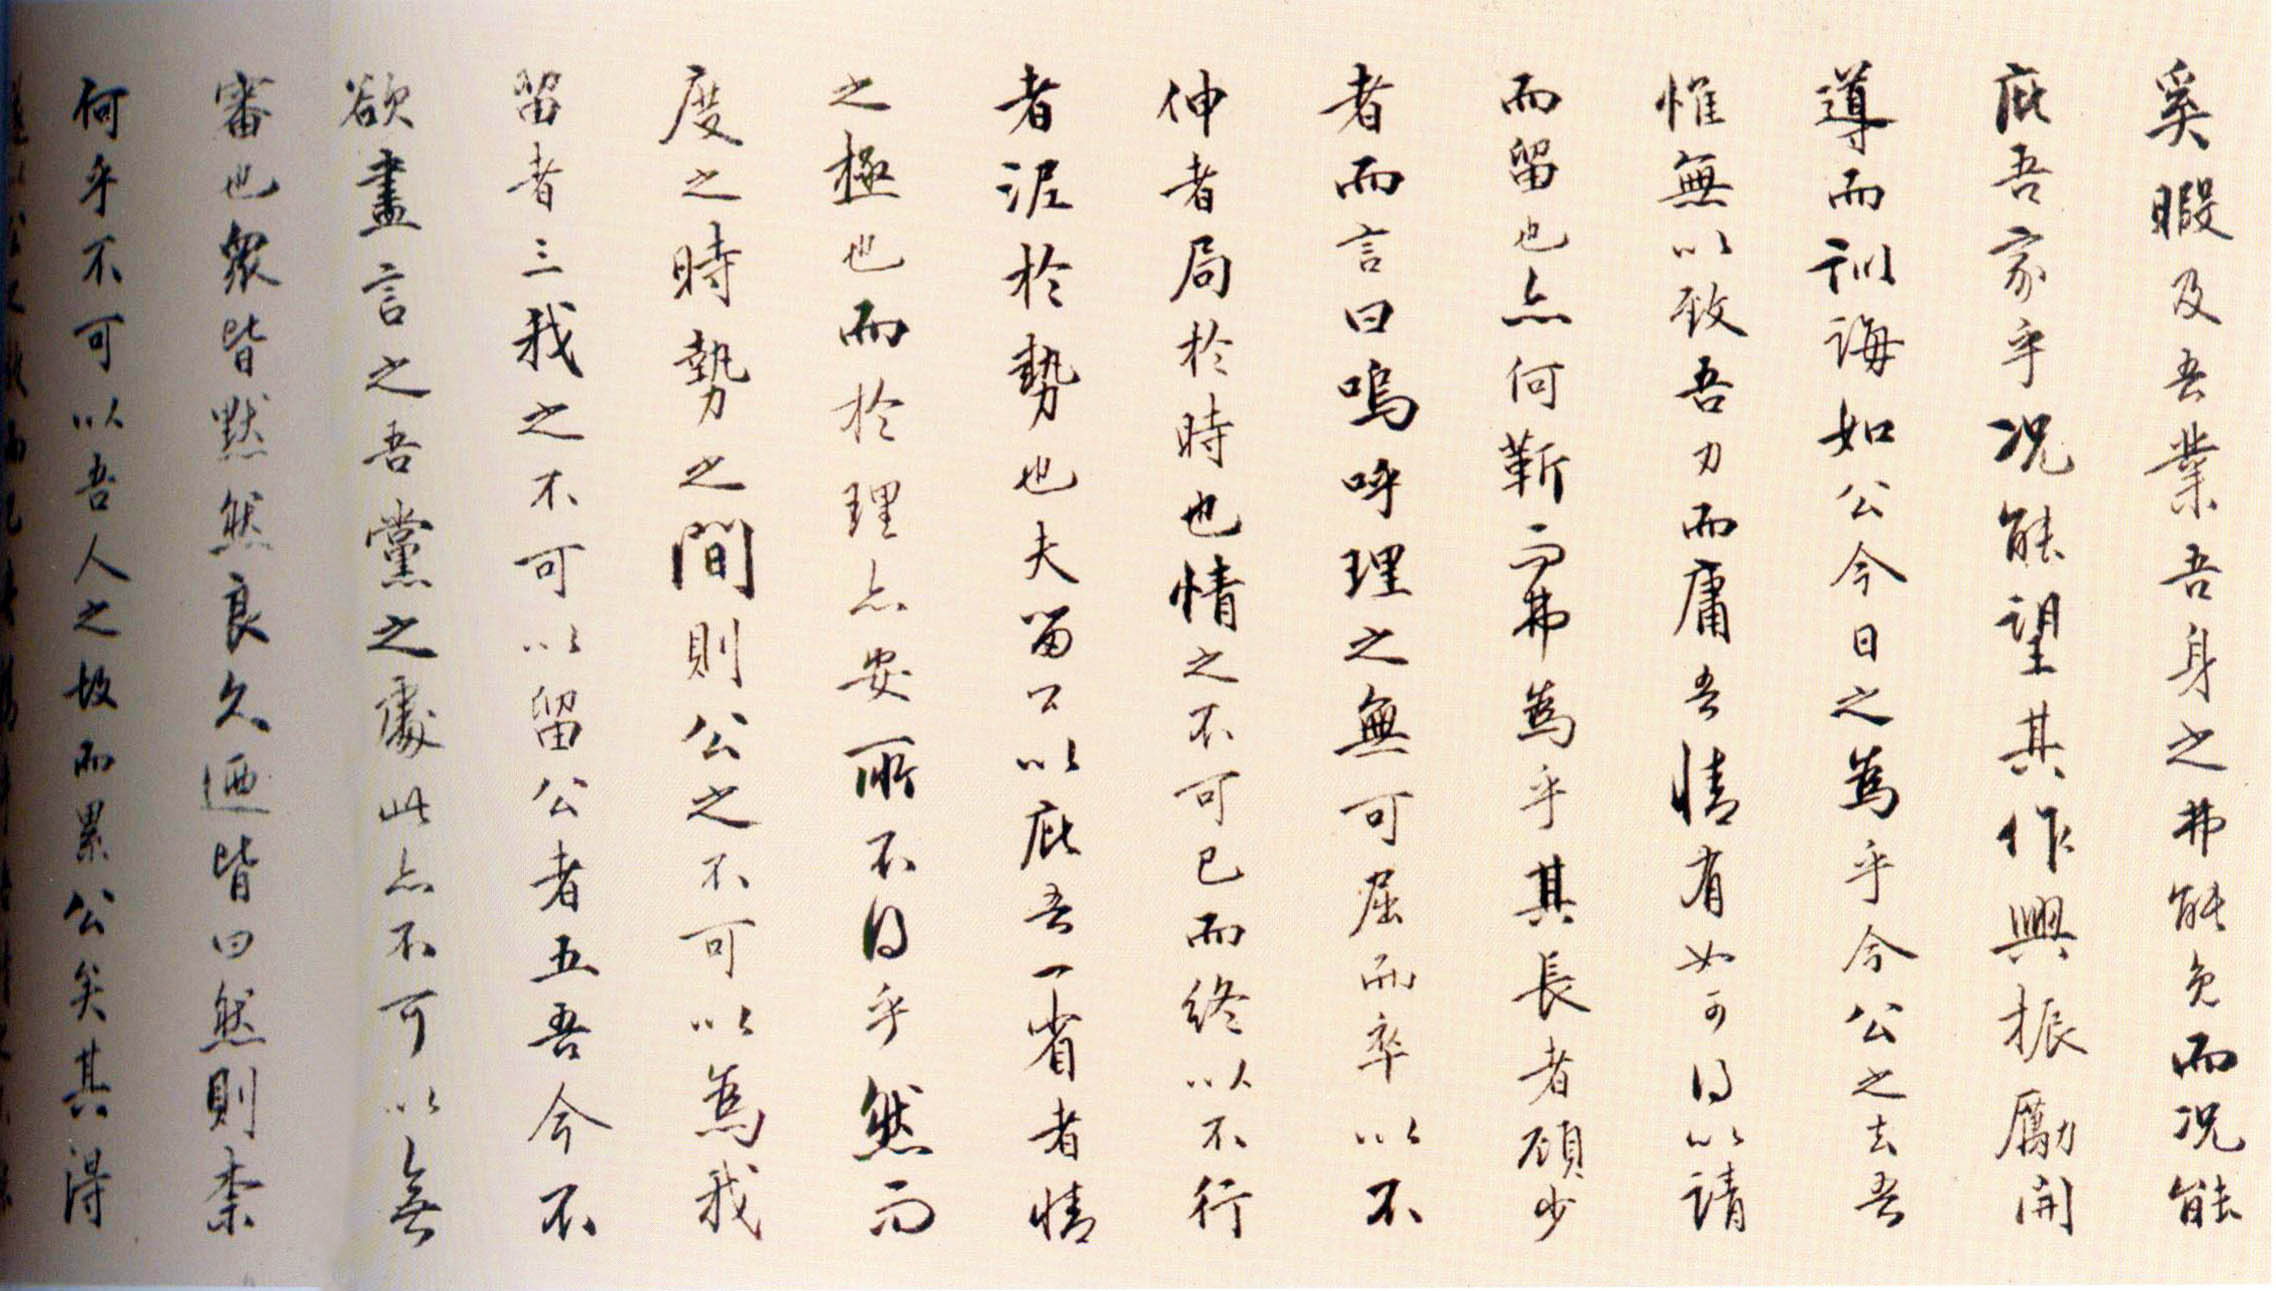 奚暇及吾業吾身之弗能免而况能
庇吾家乎况能望其作興振勵開
導而訓誨如公今日之為乎今公之去吾
惟無以致吾力而庸吾情有如可得以請
而留也亦何靳而弗為乎其長者顧少
者而言曰嗚呼理之無可屈而卒以不
伸者局於時也情之不可已而終以不行
者泥於勢也夫留公以庇吾一省者情
之極也而於理亦安所不得乎然而
度之時勢之間則公之不可以為我
留者三我之不可以留公者五吾今不
欲盡言之吾黨之處此亦不可以無
審也衆皆默然良久迺皆曰然則柰
何乎不可以吾人之故而累公矣其得